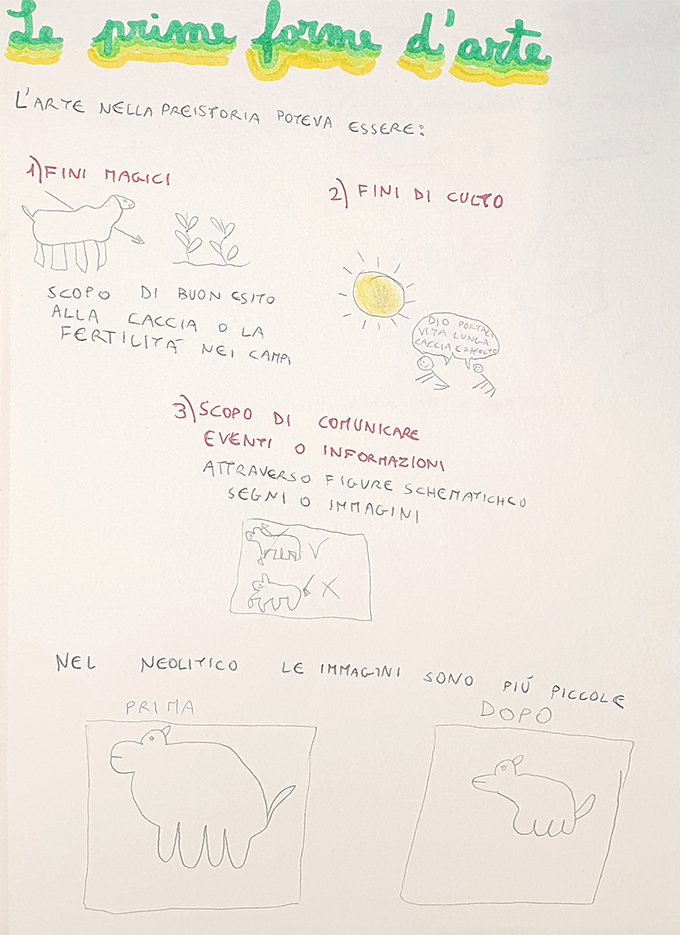 Le prime forme d'arte
L'ARTE NELLA PREISTORIA POTEVA ESSERE:
1) FINI MAGICI
SCOPO DI BUON ESITO
ALLA CACCIA O LA
FERTILITÀ NEI CAMPI
2) FINI DI CULTO
DIO PORTACI
VITA LUNGA
CACCIA E RACCOLTO
3) SCOPO DI COMUNICARE
EVENTI O INFORMAZIONI
ATTRAVERSO FIGURE SCHEMATICHE O
SEGNI O IMMAGINI
NEL NEOLITICO LE IMMAGINI SONO PIÚ PICCOLE
PRIMA
DOPO